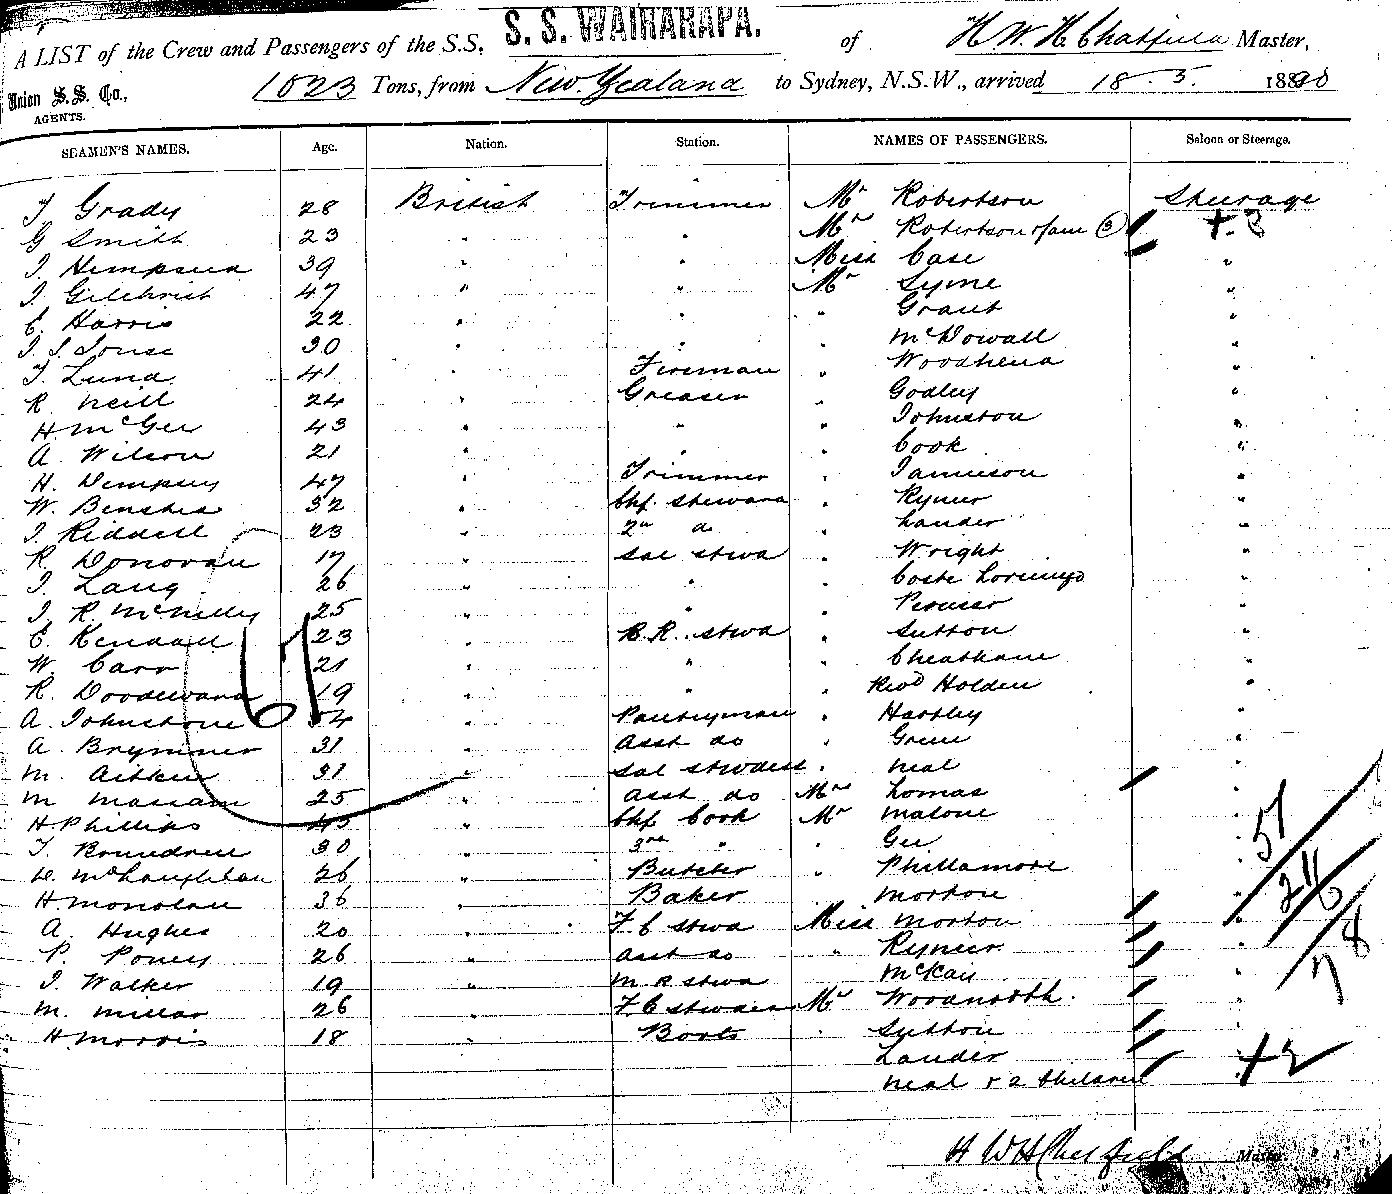 S. S. WAIRARAPA.
A LIST of the Crew and Passengers of the S.S. of H. W. H. Chatfield Master,
Union S. S. Co., AGENTS. 1023 Tons, from New Zealand to Sydney, N.S.W., arrived 18. 3. 1890
SEAMEN'S NAMES. Age. Nation. Station. NAMES OF PASSENGERS. Saloon or Steerage.
T Grady 28 British Trimmer Mr Robertson Steerage
G Smith 23 " " Mrs Robertson & fam (3) " + 3
39 " " Miss Case "
J. Gilchrist 47 " " Mr Syme "
E. Harris 22 " " " Grant "
30 " " McDowall "
T. Lund 41 " Fireman " "
R. Neill 24 " Greaser " Godley "
H. McGee 43 " " " Johnston "
A. Wilson 21 " " Cook "
H. Dempsey 47 " Trimmer " Jamieson "
W. 32 " Chf. Steward " Rymer "
J. Riddell 23 2nd do " Lauder "
R. Donovan 17 " Sal Stwd " Wright "
J. Lang 26 " " "
J. R. McNelly 25 " " "
E. Kendall 23 " B. R. Stwd " Sutton "
W. Carr 21 " " "
R. 19 " " Revd Holden "
A. Johnstone 34 " Pantryman " Hartley "
A. Brymner 31 " Asst do " Green "
M. Aitken 31 " Sal Stwdess " Neal "
M 25 " Asst do Mrs Lomas "
H. Phillips 45 " Chf Cook Mr Malone "
T. 30 " 3rd " " Gee "
D. McLaughlan 26 " Butcher " Phillamore "
H 36 " Baker Morton "
A. Hughes 20 " F C Stwd Miss Morton "
P. 26 " Asst do " Rymer "
J. Walker 19 " M R Stwd McKay "
M. Millar 26 " F. C Stwdess "
H Morris 18 " Boots " Sutton "
Lauder
Neal & 2 Children + 2
61
51
78
H W H Chatfield Master